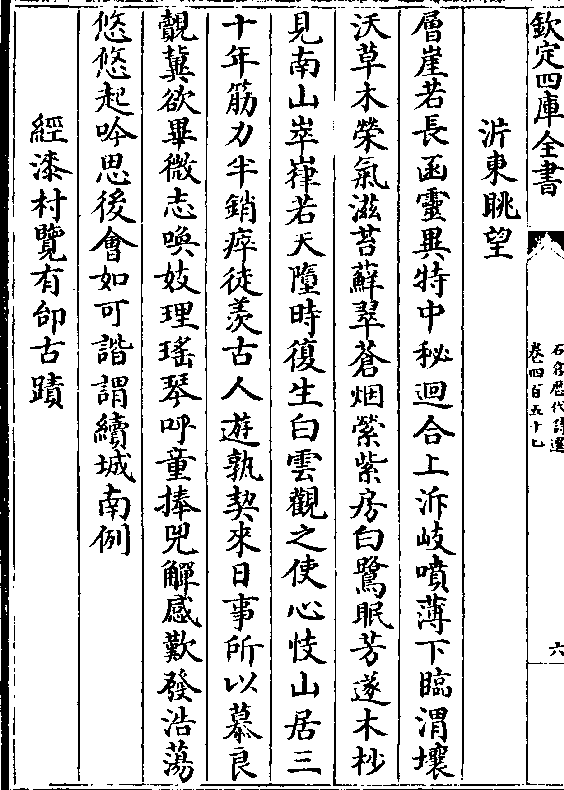 欽定四庫全書
石倉歷代詩選
卷四百五十七
六
泝東眺望
層崖若長函靈異特中秘迴合上泝岐噴薄下臨渭壤
沃草木榮氣滋苔蘚翠蒼烟縈紫房白鷺眠芳邃木杪
見南山崒嵂若天墮時復生白雲觀之使心忮山居三
十年筋力半銷瘁徒羡古人遊孰契來日事所以慕良
覿冀欲畢微志喚妓理瑤琴呼童捧兕觶感歎發浩蕩
悠悠起吟思後會如可諧謂續城南例
經漆村覽有邰古蹟